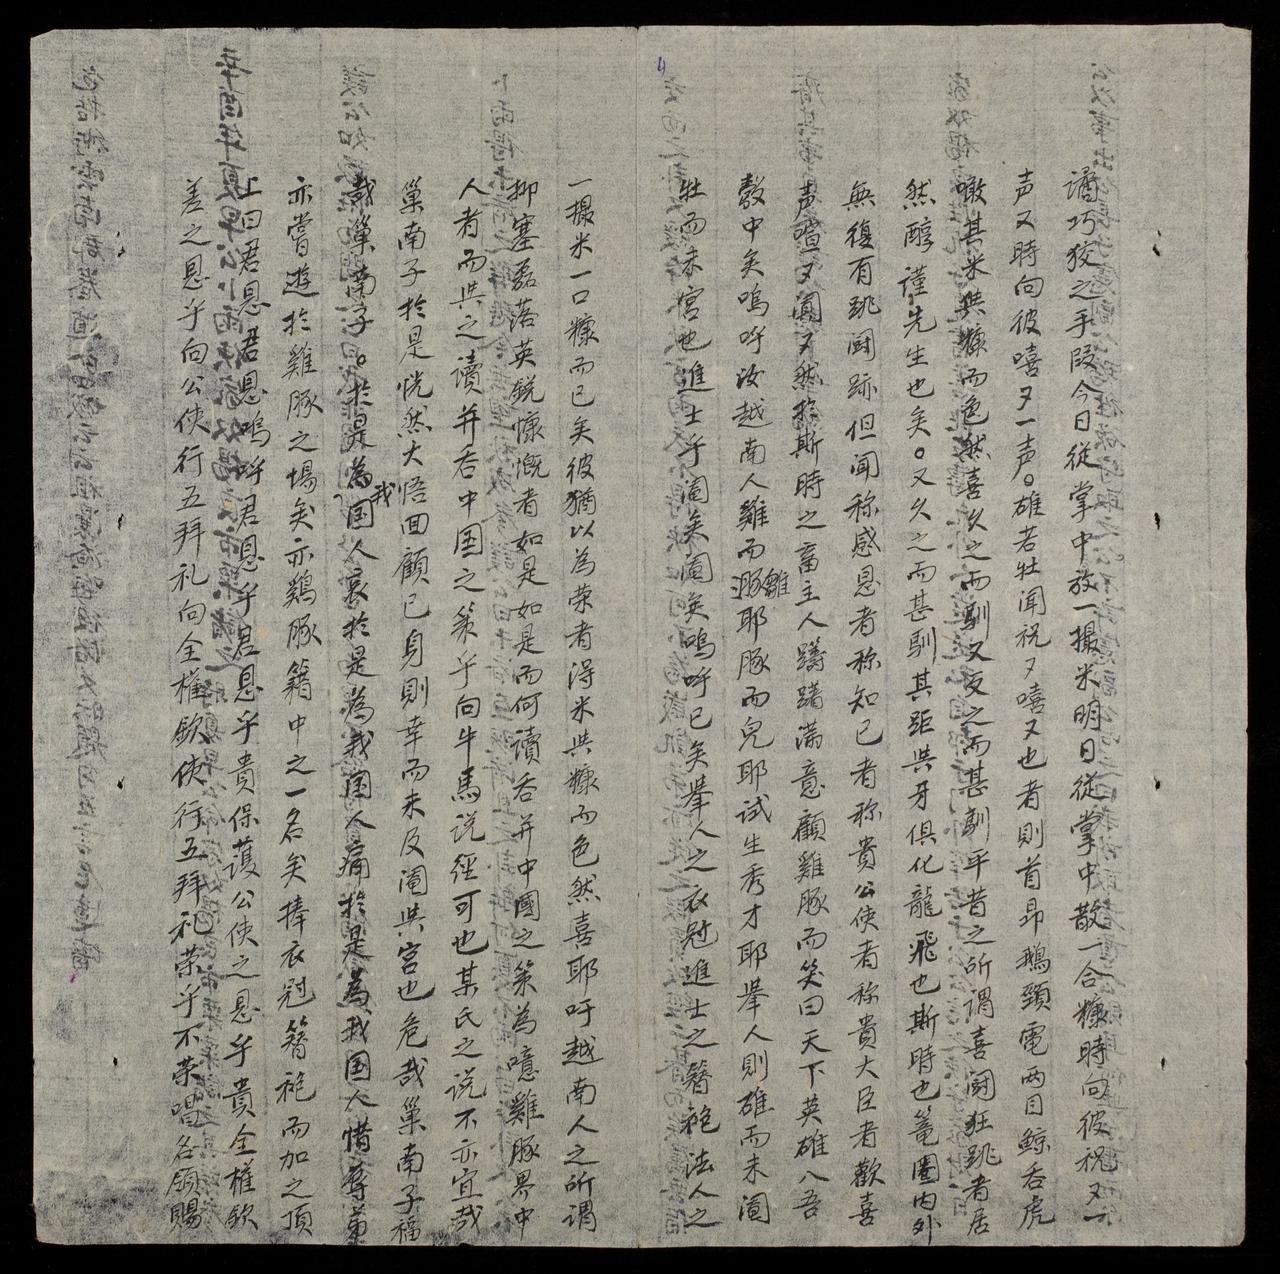 譎巧狡之手段今日從掌中放一撮米明日從掌中散一合糠時向彼祝又一
声又時向彼嘻夕一声。雄若牡聞祝夕嘻又也者則首昂鵝頸電両目鯨吞虎
噉其米與糠而色然喜久之而馴又文之而甚馴平昔之所謂喜闘狂跳者居
然醇謹先生也矣。又久之而甚馴其距與牙俱化龍飛也斯時也篭圏内外
無復有跳闘跡但闻称感恩者称知己者称貴公使者称貴大臣者歡喜
声喧又闐又然於斯時之畜主人躊躇滿意顧雞豚而笑曰天下英雄入吾
彀中矣嗚呼汝越南人雞而雛耶豚而兒耶試生秀才耶舉人則雄而未閹
牡而未宮也進士乎閹矣閹矣嗚呼已矣舉人之衣冠進士之簪袍法人之
一撮米一口糠而已矣彼猶以為荣者得米與糠而色然喜耶吁越南人之所謂
抑塞磊落英銳慷慨者如是如是而何讀吞并中國之策為噫雞豚界中
人者而與之讀并吞中国之策乎向牛馬说經可也某氏之说不亦宜哉
巢南子於是恍然大悟回顧己身則幸而未及閹與宮也危哉巢南子福
哉巢南子。於是為我国人哀於是為我国人痛於是為我国人惜尊弟
亦嘗遊於雞豚之場矣亦鷄豚籍中之一名矣捧衣冠簪袍而加之頂
上曰君恩君恩嗚呼君恩乎君恩乎貴保護公使之恩乎貴全權欽
差之恩乎向公使行五拜礼向全權欽使行五拜礼荣乎不荣唱名領賜